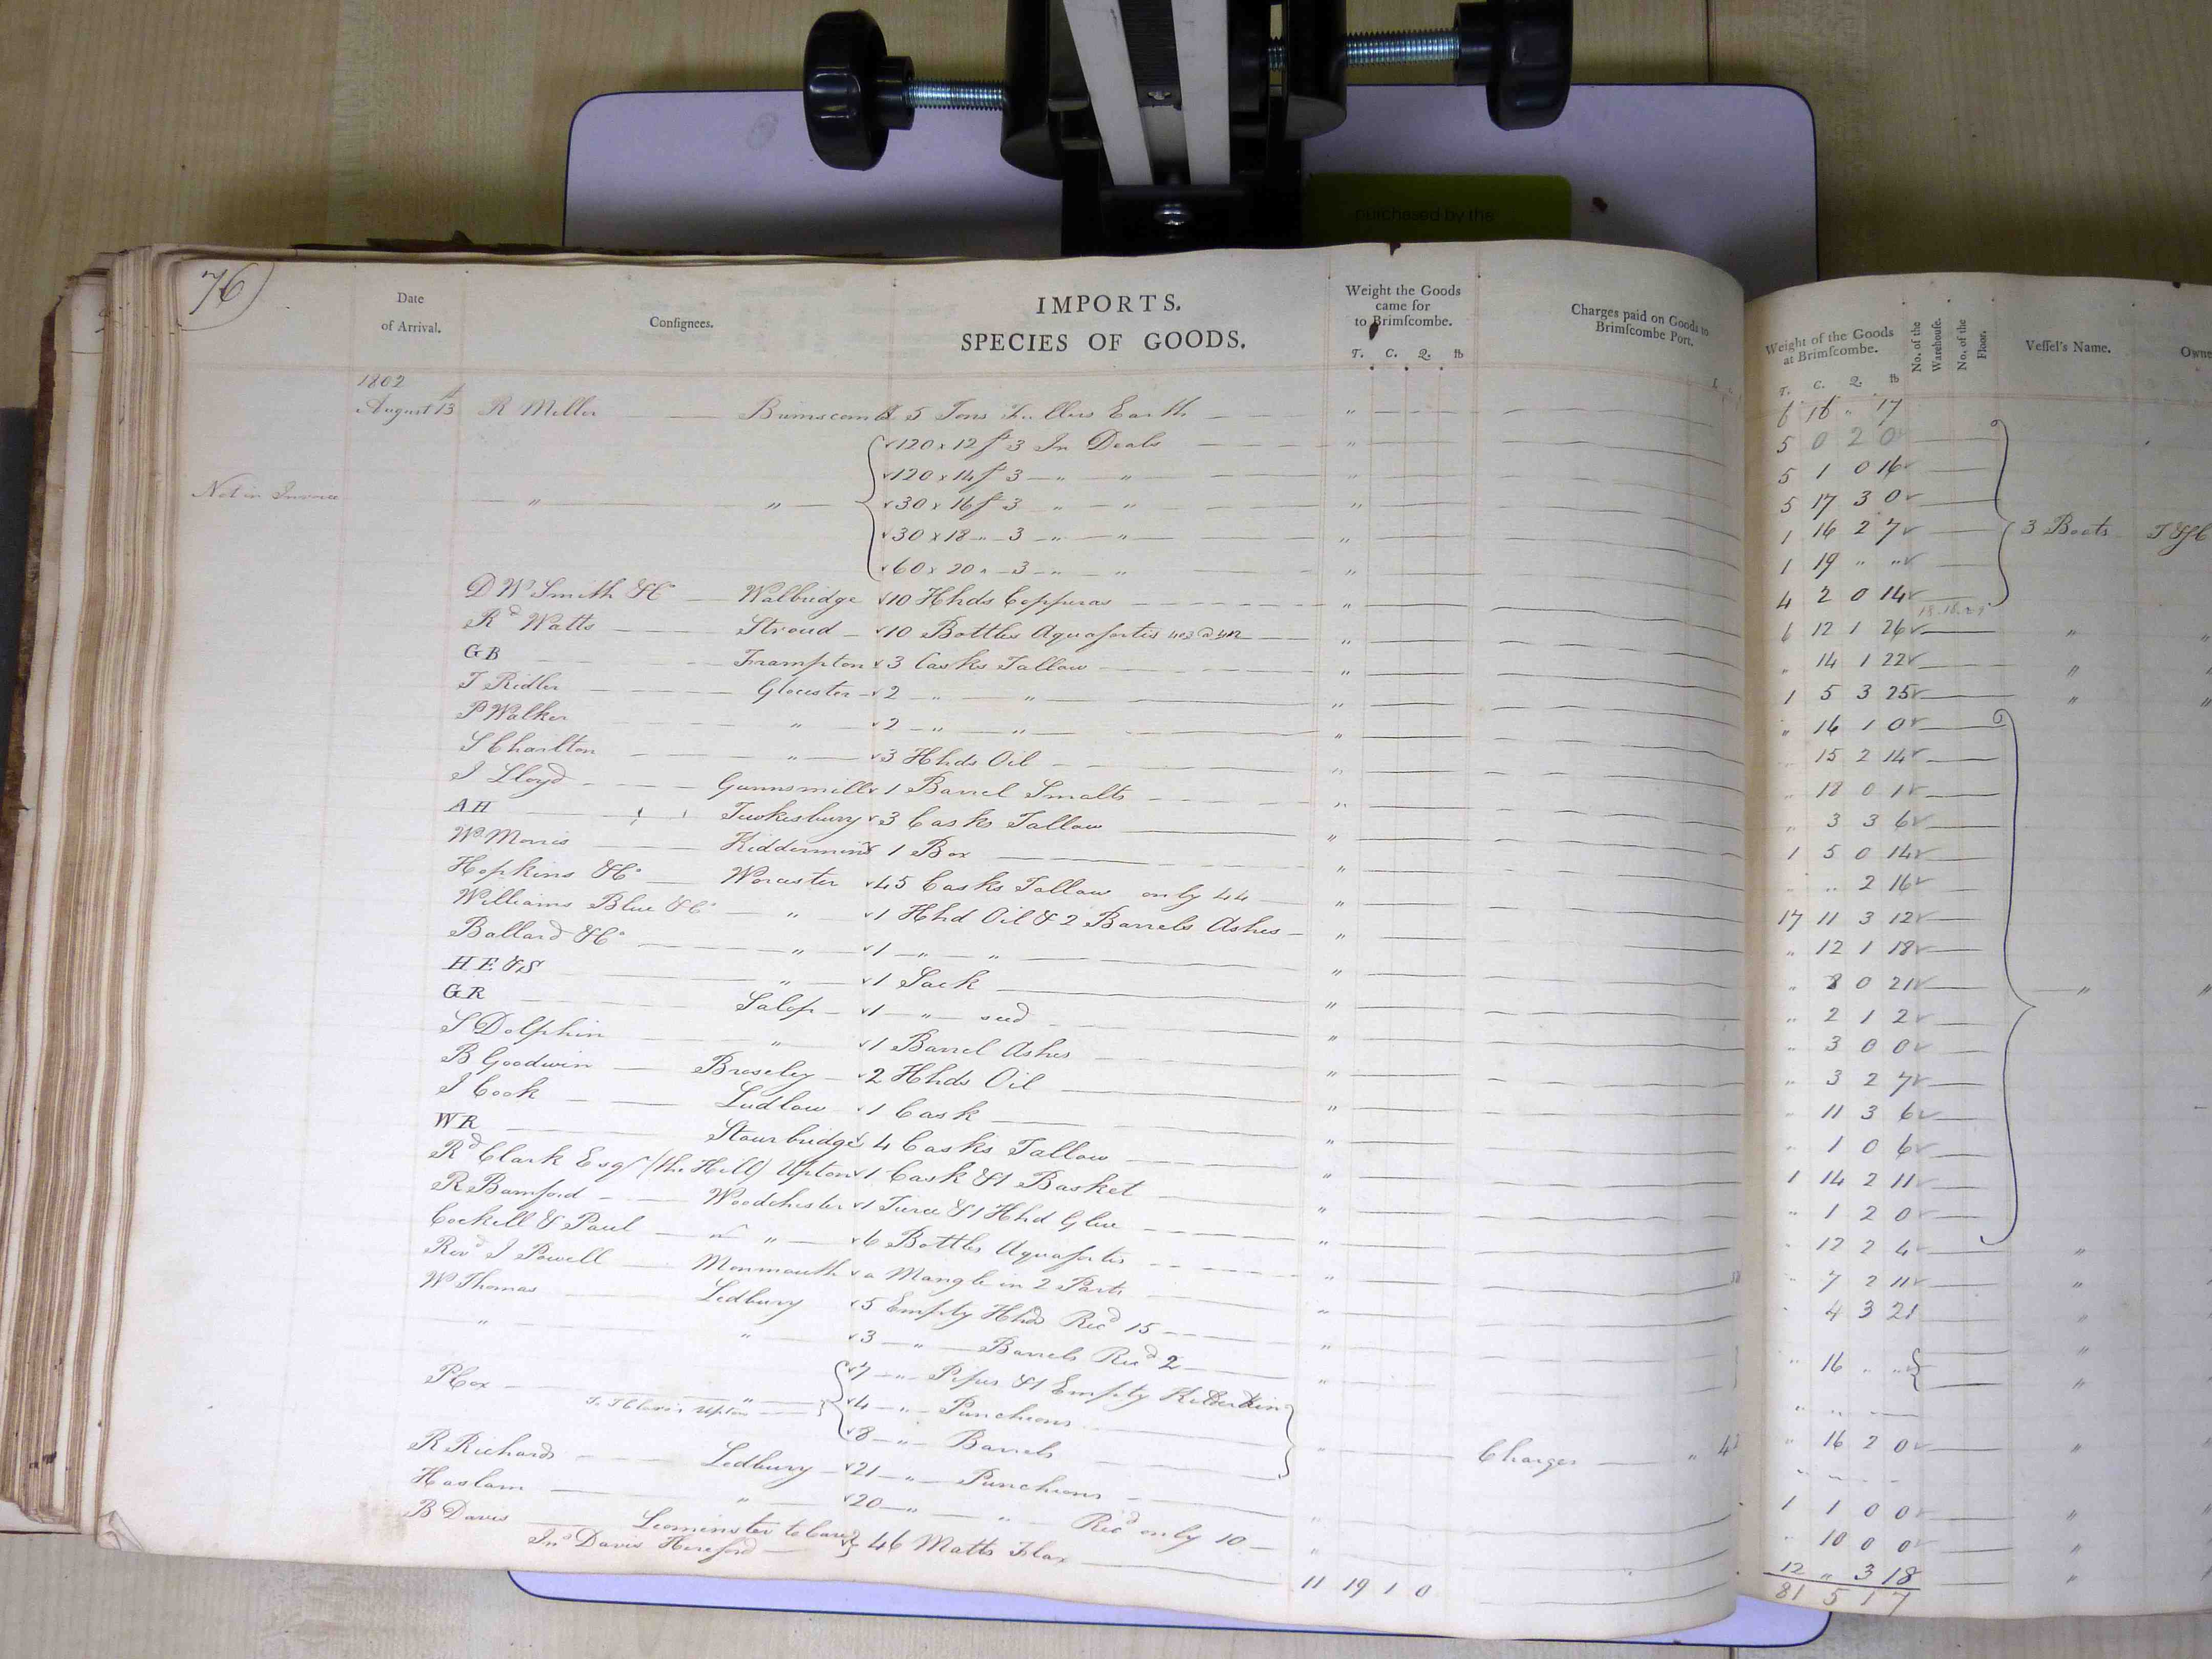 purchased by the
76
Date of Arrival. Conſignees. IMPORTS. SPECIES OF GOODS. Weight the Goods came for to Brimſcombe. T. C. Q. lb Charges paid on Goods to Brimſcombe Port.
Weight of the Goods at Brimſcombe. T. C. Q. lb No. of the Warehouſe. No. of the Floor. Veſſel's Name. Owne
1802
August 13th R Miller Brimscomb 5 Tons Fullers Earth " 5 0 2 0
120 x 12 ft 3 In Deals " 5 1 0 16
120 x 14 ft 3 " " 5 17 3 0
Not in Invoice " " 30 x 16 ft 3 " " " 1 16 2 7 3 Boats
30 x 18 " 3 " " " 1 19 " "
60 x 20 " 3 " " " 4 2 0 14
D W Smith & Co Walbridge 10 Hhds Copperas " 6 12 1 26 "
Rd Watts Stroud 10 Bottles Aquafortis " 14 1 22 "
GB Frampton 3 Casks Tallow " 1 5 3 25 "
T Ridler Glocester 2 " " " 16 1 0
P Walker " 2 " " " 15 2 14
S Charlton " 3 Hhds Oil " 18 0 1
J Lloyd Gunnsmill 1 Barrel Smalts " 3 3 6
AH Tewkesbury 3 Casks Tallow " 1 5 0 14
Wm Morris Kiddermins 1 Box " " 2 16
Hopkins & Co Worcester 45 Casks Tallow only 44 " 17 11 3 12
Williams Blew & Co " 1 Hhd Oil & 2 Barrels Ashes " 12 1 18
Ballard & Co " 1 " " " 8 0 21 "
HE&S " 1 Sack " 2 1 2
GR Salop 1 " seed " 3 0 0
S Dolphin " 1 Barrel Ashes " 3 2 7
B Goodwin Broseley 2 Hhds Oil " 11 3 6
J Cook Ludlow 1 Cask " 1 0 6
WR Stourbridge 4 Casks Tallow " 1 14 2 11
Rd Clark Esqr (the Hill) Upton 1 Cask & 1 Basket " 1 2 0
R Bamford Woodchester 1 Tierce & 1 Hhd Glue " 12 2 4 "
Cockell & Paul " 6 Bottles Aquafortis " 7 2 11 "
Revd J Powell Monmouth a Mangle in 2 Parts " 4 3 21
W Thomas Ledbury 5 Empty Hhds Recd 15 " 16 " " "
" " 3 " Barrels Recd 2 " "
P Cox " 7 " Pipes & 1 Empty Kilderkin
Upton 4 " Puncheons " Charges " 16 2 0 "
8 " Barrels
R Richards Ledbury 21 " Puncheons " 1 1 0 0 "
Haslam " 20 " " Recd only 10 " 10 0 0 "
B Davis Leominster to Care
Jno Davis Hereford 46 Matts Flax 11 19 1 0 12 " 3 18 "
81 5 1 7